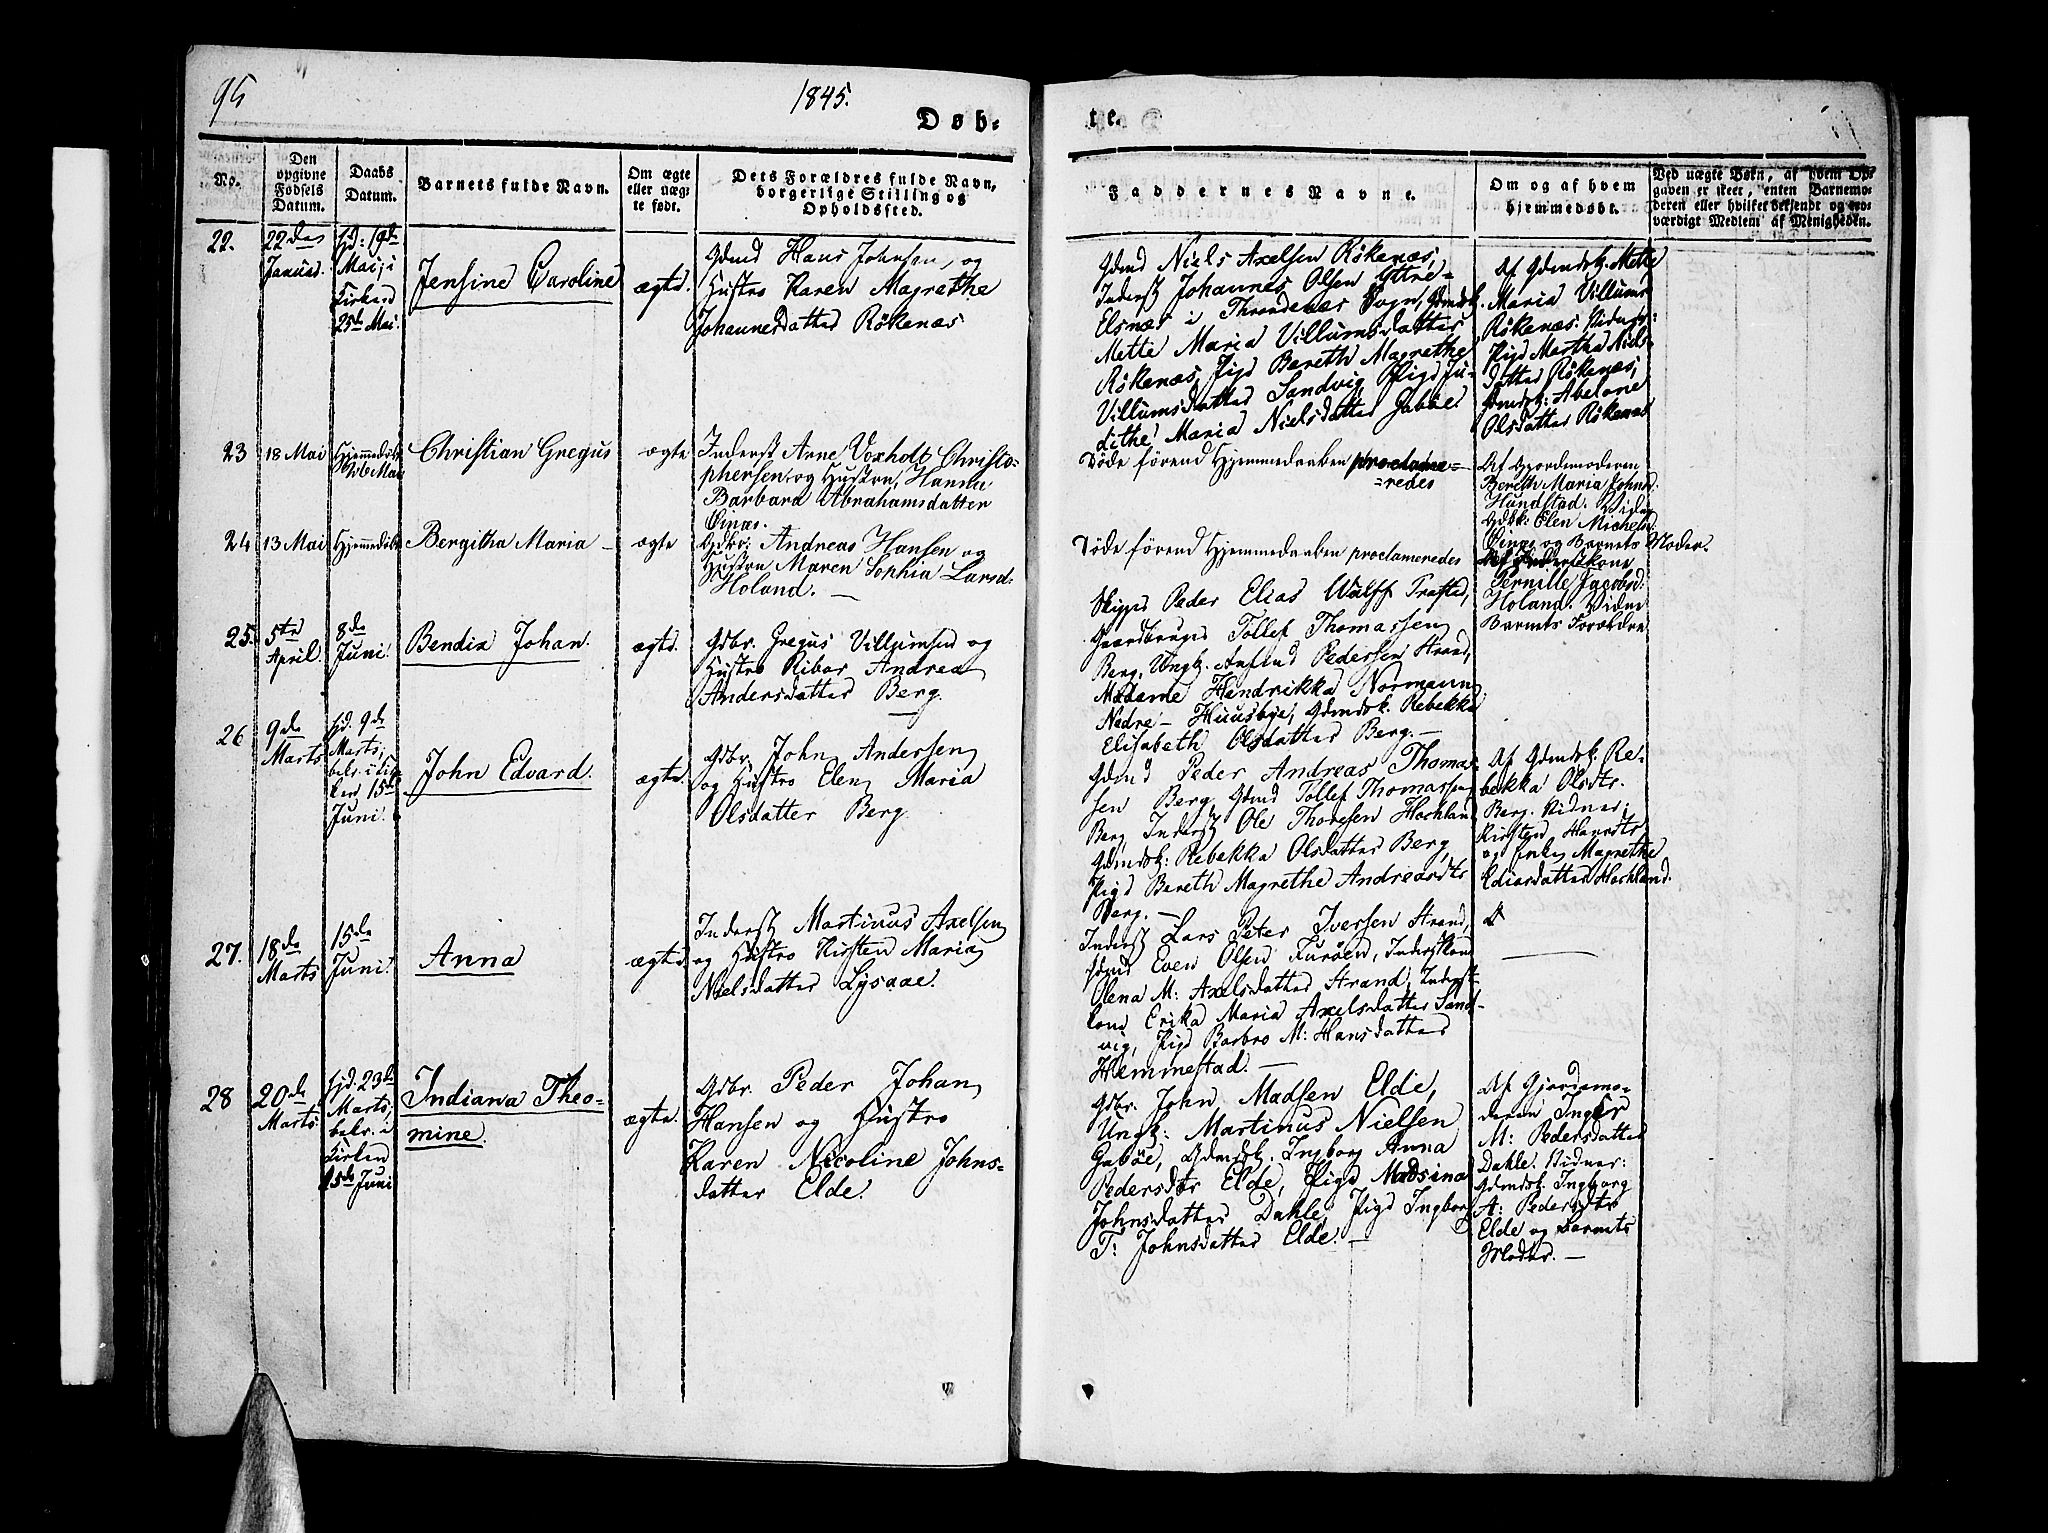 95
1845.
Døb-
te.
No.
Den
opgivne
Fødsels
Datum.
Daabs
Datum.
Barnets fulde Navn.
Om ægte
eller uæg-
te født.
Dets Forældres fulde Navn,
borgerlige Stilling og
Opholdssted.
Faddernes Navne.
Om og af hvem
hjemmedøbt.
Ved uægte Børn, af hvem Op-
gaven er skeet, enten Barnemo-
deren eller hvilket bekjendt og tro-
værdigt Medlem af Menigheden.
22.
22de
Januar.
hjd: 19de
Mai; i
Kirken
25de Mai.
Jensine Caroline
ægte.
Gdmd Hans Johnsen, og
Hustro Karen Magrethe
Johannesdatter Rökenæs
Gdmd Niels Axelsen Rökenæs,
Inderst Johannes Olsen Yttre-
Elsnæs i Throndenæs Sogn, Gdmdsk.
Mette Maria Villumsdatter
Rökenæs, Pige Bereth Magrethe
Villumsdatter Sandvig, Pige Ju-
dithe Maria Nielsdatter Gaböe.
Af Gdmdsk. Mette
Maria Villums
Rökenæs. Vidner:
Pige Martha Niels-
datter Rökenæs,
Gdmdsk: Abelone
Olsdatter Rökenæs
23
18 Mai
Hjemmedøbt
26 Mai
Christian Gregus
ægte
Inderst Arne Voxholt Christo-
phersen og Hustru Hanna
Barbara Abrahamsdatter
Øinæs.
Døde førend Hjemmedaaben proclame-
=redes
Af Gjordemoderen
Bereth Maria Johnsd:
Hundstad. Vidner
Gdsk: Elen Michelsd:
Øinæs og Barnets Moder.
24
13 Mai
Hjemmedøbt
Bergitha Maria -
ægte
Gdbr: Andreas Hansen og
Hustru Maren Sophia Larsd:
Holand. -
Døde førend Hjemmedaaben proclameredes
Af Inderstkone
Pernille Jacobsd:
Holand. Vidne
Barnets Forældre
25.
5te
April.
8de
Juni.
Bendix Johan.
ægte.
Gdbr. Gregus Villumsen og
Hustro Ribor Andrea
Andersdatter Berg.
Skipper Peder Elias Wulff Trasted,
Gaardbruger Tollef Thomassen
Berg, Ungk. Anfind Pedersen Strand,
Madame Hendrikka Normann
Nedre-Huusbye, Gdmdsk. Rebekka
Elisabeth Olsdatter Berg. -
26
9de
Marts
hjd. 9de
Marts,
bekr. i Kir-
ken 15de
Juni.
John Edvard.
ægte.
Gdbr. John Andersen
og Hustro Elen Maria
Olsdatter Berg.
Gdmd Peder Andreas Thomas-
sen Berg, Gdmd Tollef Thomassen
Berg, Inderst Ole Thoresen Hochland
Gdmdsk: Rebekka Olsdatter Berg,
Pige Bereth Magrethe Andreasdtr
Berg. -
Af Gdmdsk. Re-
bekka Olsdtr.
Berg. Vidner:
Kirsten Hansdtr
og Enke Magrethe
Ediasdatter Hochland.
27.
18de
Marts
15de
Juni.
Anna
ægte
Inderst Martinus Axelsen
og Hustro Kirsten Maria
Nielsdatter Lysaae.
Inderst Lars Peter Iversen Strand,
Gdmd Even Olsen Furöen, Inderstkone
Olena M: Axelsdatter Strand, Inderst-
kone Erika Maria Axelsdatter Sand-
vig, Pige Barbro M: Hansdatter
Hemmestad. -
28
20de
Marts
hjd. 23de
Marts,
bekr. i
Kirken
15de Juni
Indiana Theo-
mine.
ægte.
Gdbr. Peder Johan
Hansen og Hustro
Karen Nicoline Johns-
datter Elde.
Gdbr. John Madsen Elde,
Ungk: Martinus Nielsen
Gaböe, Gdmdsk. Ingborg Anna
Pedersdtr Elde, Pige Madsina
Johnsdatter Dahle, Pige Ingborg
T: Johnsdatter Elde. -
Af Gjordemo-
deren Inger
M: Pedersdatter
Dahle. Vidner:
Gdmdsk. Ingborg
A: Pedersdtr
Elde og Barnets
Moder. -